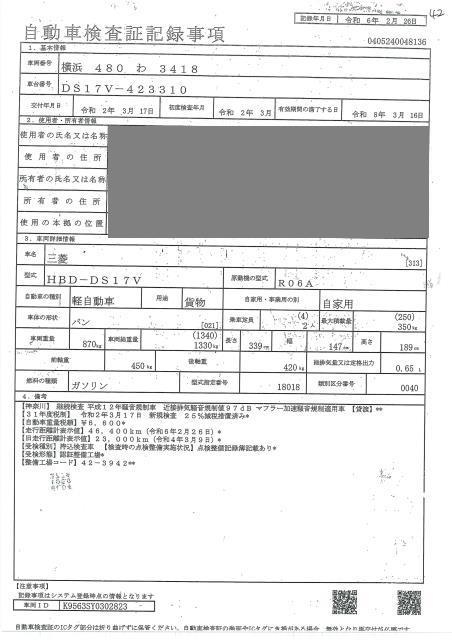 42
記録年月日 令和 6年 2月 26日
自動車検査証記録事項
0405240048136
1. 基本情報
車両番号 横浜 480 わ 3418
車台番号 DS17V-423310
交付年月日 令和 2年 3月 17日 初度検査年月 令和 2年 3月 有効期間の満了する日 令和 8年 3月 16日
2. 使用者・所有者情報
使用者の氏名又は名称
使用者の住所
所有者の氏名又は名称
所有者の住所
使用の本拠の位置
3. 車両詳細情報
車名 三菱 [313]
型式 HBD-DS17V 原動機の型式 R06A
自動車の種別 軽自動車 用途 貨物 自家用・事業用の別 自家用
車体の形状 バン [021] 乗車定員 (4) 2人 最大積載量 (250) 350kg
車両重量 870kg 車両総重量 (1340) 1330kg 長さ 339cm 幅 147cm 高さ 189cm
前軸重 450kg 後軸重 420kg 総排気量又は定格出力 0.65L
燃料の種類 ガソリン 型式指定番号 18018 類別区分番号 0040
4. 備考
【神奈川】 継続検査 平成12年騒音規制車 近接排気騒音規制値97dB マフラー加速騒音規制適用車 【貨渡】**
【31年度税制】 令和2年3月17日 新規検査 25%減税措置済み*
【自動車重量税額】 ¥6,600*
【走行距離計表示値】 46,400km (令和6年2月26日)*
【旧走行距離計表示値】 23,000km (令和4年3月9日)*
【受検種別】持込検査車 【検査時の点検整備実施状況】点検整備記録簿記載あり*
【受検形態】認証整備工場*
【整備工場コード】42-3942**
【注意事項】
記録事項はシステム登録時点の情報となります
車両ID K9563SY0302823